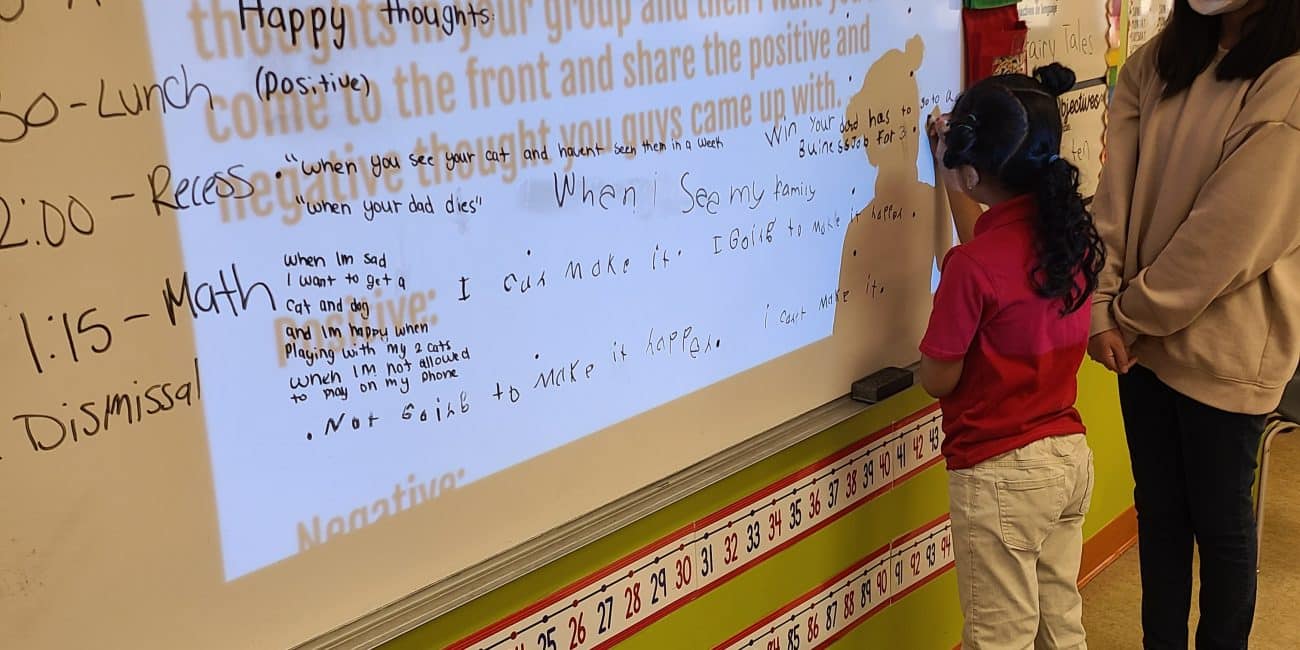 Happy thoughts:
(Positive)
thoughts in your group and then I want you
come to the front and share the positive and
negative thought you guys came up with.
Positive:
Negative:
0-Lunch
2:00 - Recess
1:15 - Math
Dismissal
"when you see your cat and havent seen them in a week
"when your dad dies"
When i See my family
Win your dad has to go to a
Buinessjob for 3.
when Im sad
I want to get a
cat and dog
and Im happy when
Playing with my 2 cats
wneh IM not allowed
to play on my phone
I can make it. I Going to make it happen.
. Not Going to make it happen. i can't make it.
Fairy Tales
bjectives
ten
25 26 27 28 29 30 31 32 33 34 35 36 37 38 39 40 41 42 43
84 85 86 87 88 89 90 91 92 93 94